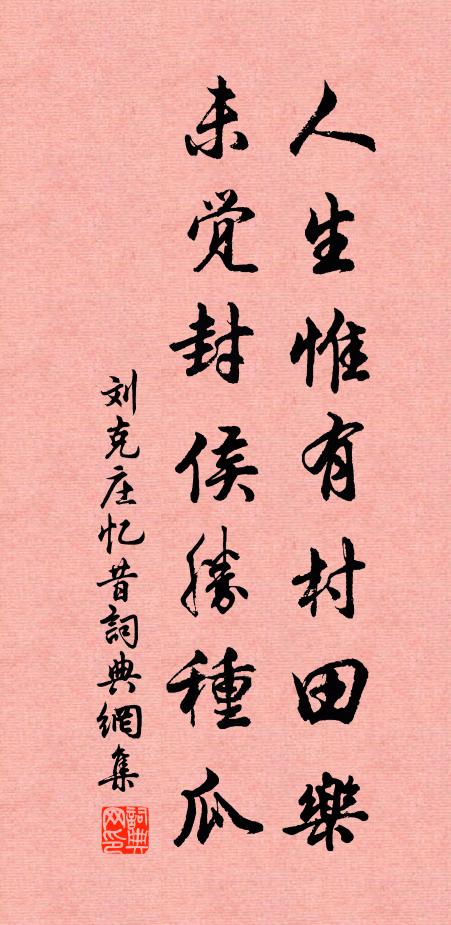 人生惟有村田樂
未覺封侯勝種瓜
刘克庄忆昔詞典網集
詞典网印